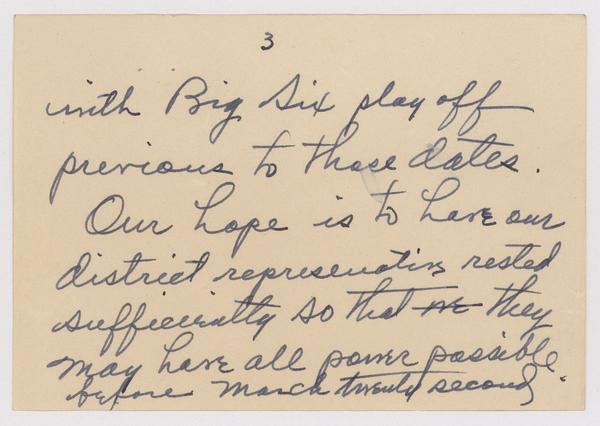 3
with Big Six play off
previous to those dates.
Our hope is to have our
district representative rested
sufficiently so that we they
may have all power possible
before March twenty second.